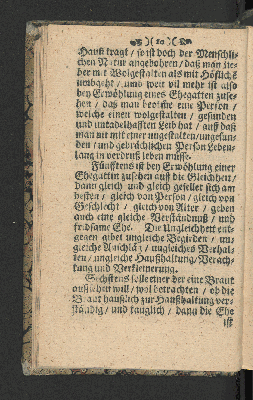 )( 10 )(
Hauß tragt / so ist doch der Menschli-
chen Natur angebohren / daß man lie-
ber mit Wolgestalten als mit Höflich
umbgeht / und weil vil mehr ist also
bey Erwöhlung eines Ehegatten zuse-
hen / daß man bekome eine Person /
welche einen wolgestalten / gesunden
und untadelhafften Leib hat / auff daß
man nit mit einer ungestalten / ungesun-
den / und gebrächlichen Person Leben-
lang in verdruß leben müsse.
Fünfftens ist bey Erwöhlung einer
Ehegattin zusehen auff die Gleichheit /
dann gleich und gleich gesellet sich am
besten / gleich von Person / gleich von
Geschlecht / gleich von Alter / geben
auch eine gleiche Verständnuß / und
fridsame Ehe. Die Ungleichheit ent-
gegen gibet ungleiche Begirden / un-
gleiche Anschläg / ungleiches Verhal-
ten / ungleiche Haußhaltung / Verach-
tung und Verkleinerung.
Sechstens solle einer der eine Braut
außsehen will / wol betrachten / ob die
Braut häußlich zur Haußhaltung ver-
ständig / und tauglich / dann die Ehe
ist